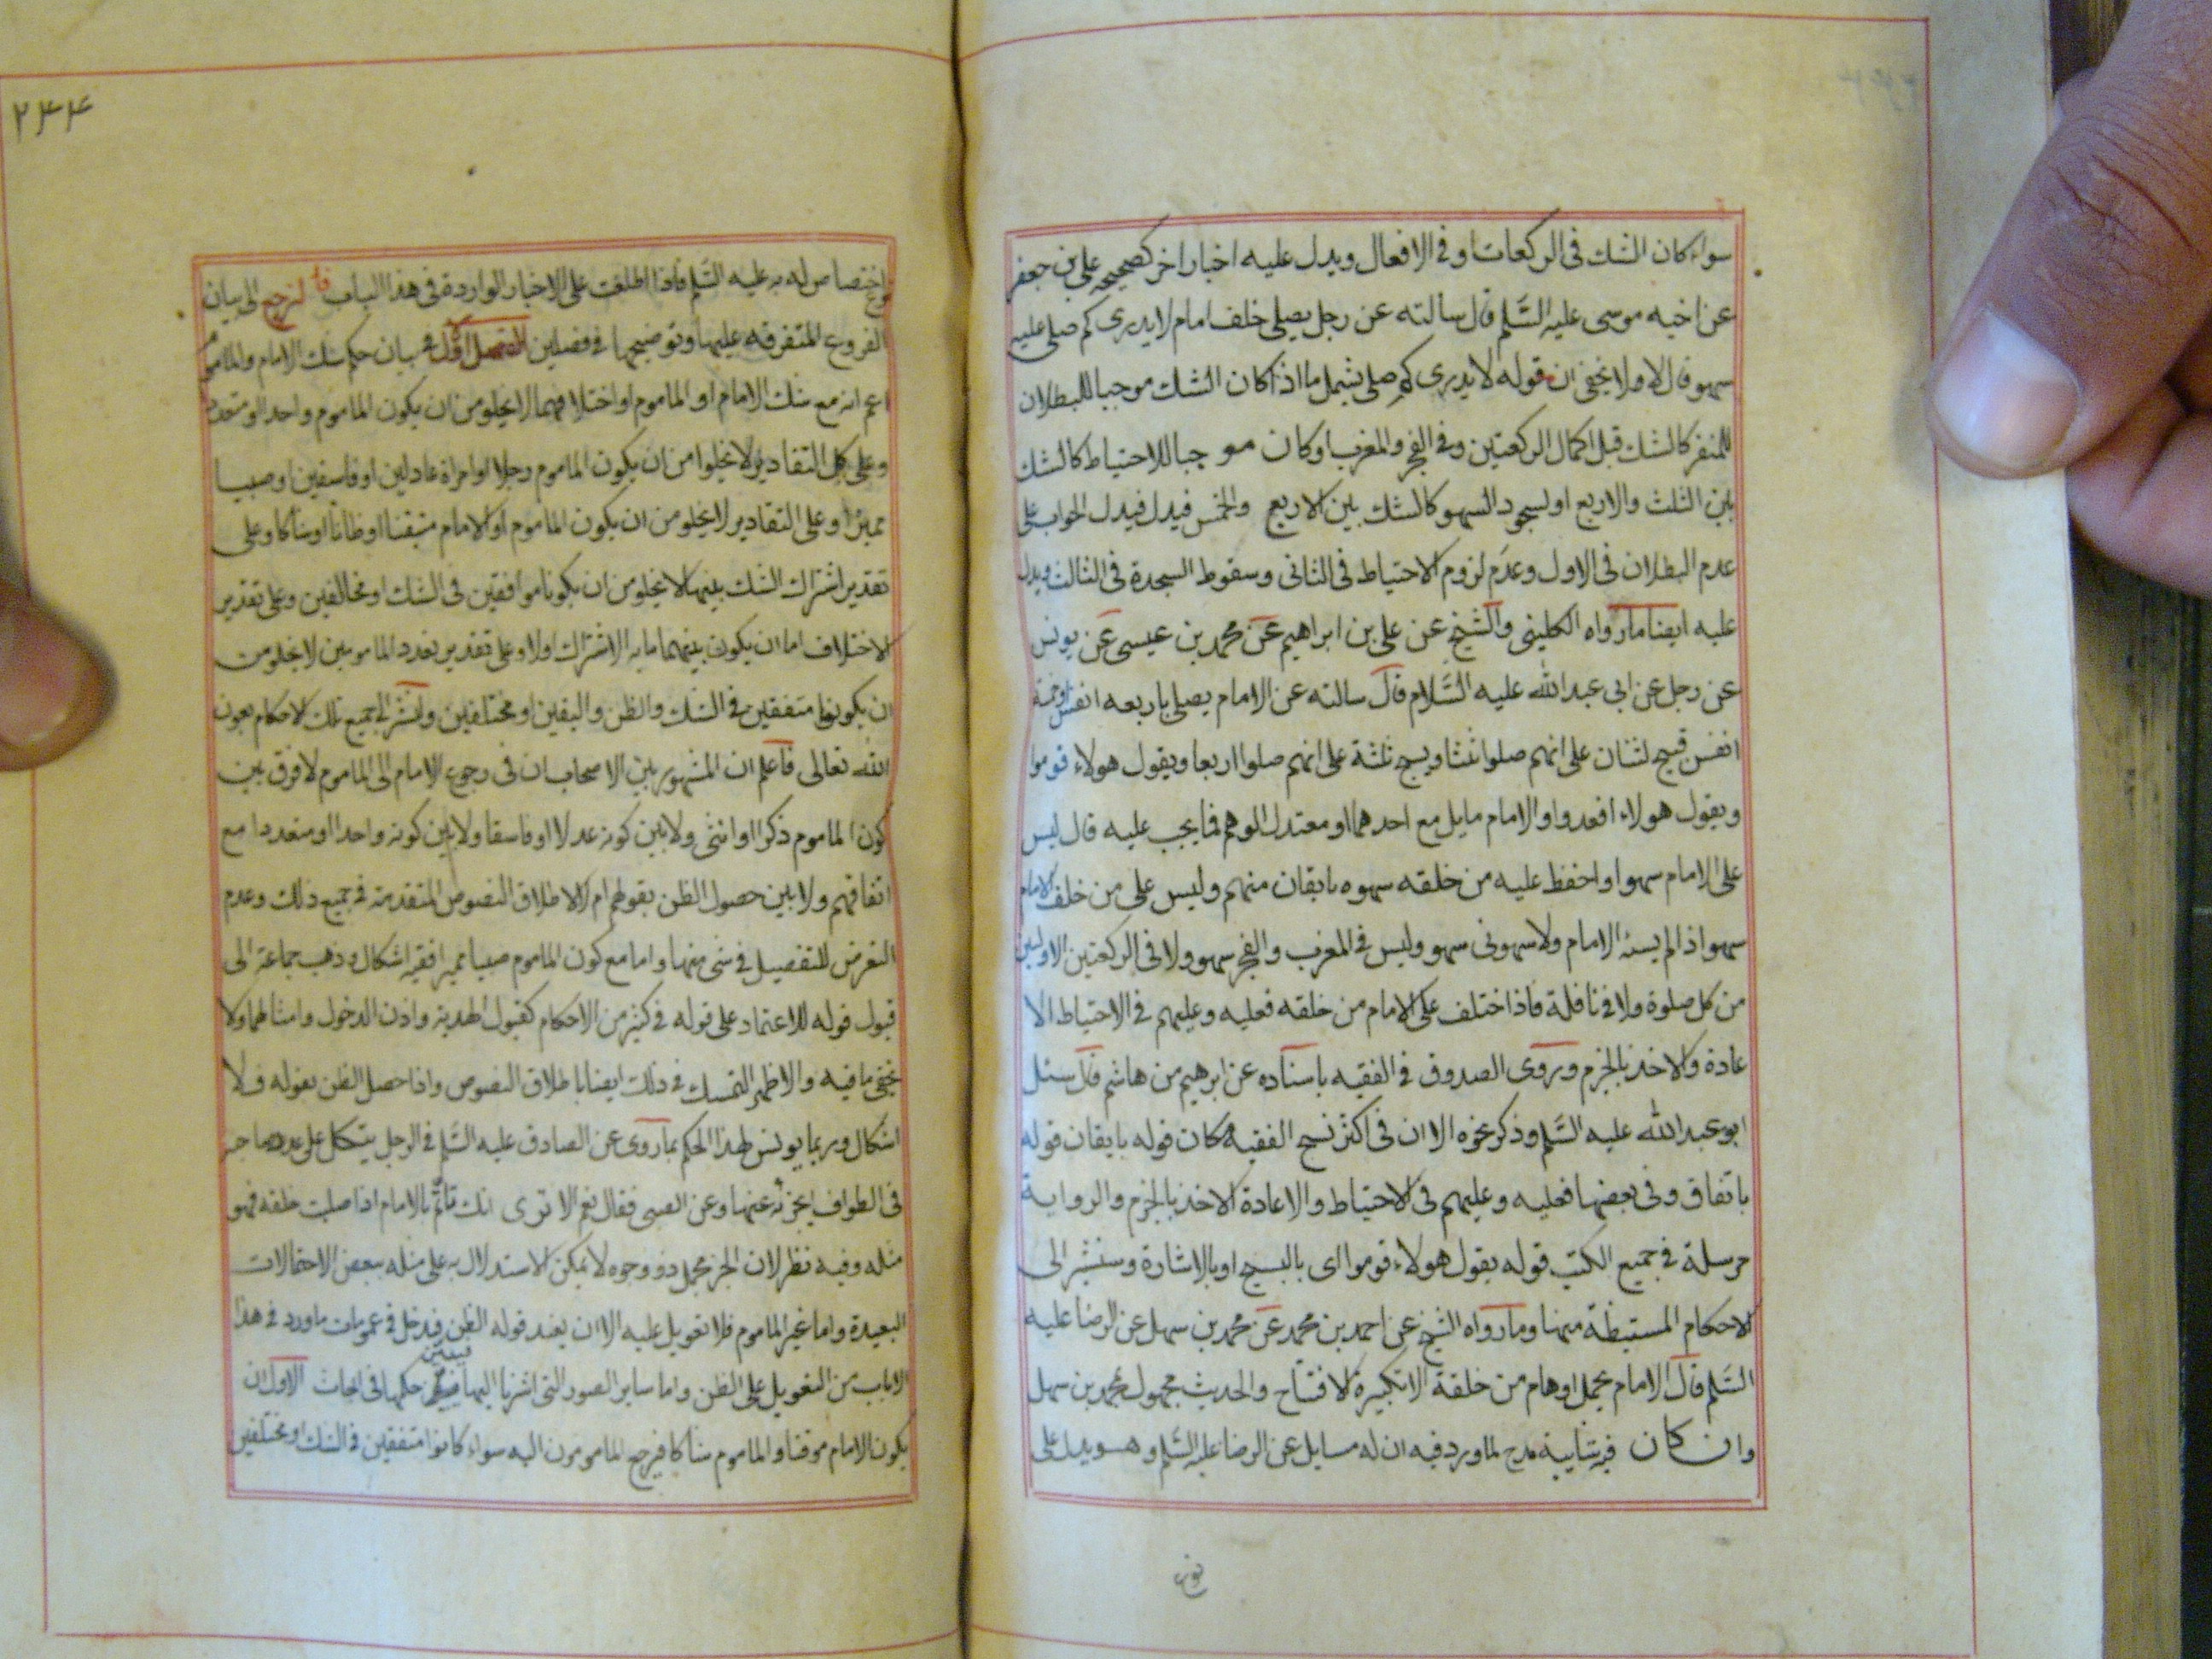 سواء كان الشك فى الركعات او فى الافعال ويدل عليه اخبار اخر كصحيحه على بن جعفر
عن اخيه موسى عليه السَّلم قال سالته عن رجل يصلى خلف امام لا يدرى كم صلى عليه
سهو قال لا ولا يخفى ان قوله لا يدرى كم صلى يشمل ما اذا كان الشك موجبا للبطلان
للمنفر كالشك قبل اكمال الركعتين وفى الفجر والمغرب او كان موجبا للاحتياط كالشك
بين الثلث والاربع او لسجود السهو كالشك بين الاربع والخمس فيدل فيدل الجواب على
عدم البطلان فى الاول وعدم لزوم الاحتياط فى الثانى وسقوط السجدة فى الثالث ويدل
عليه ايضا ما رواه الكلينى والشيخ عن على بن ابراهيم عن محمد بن عيسى عن يونس
عن رجل عن ابى عبد الله عليه السَّلام قال سالته عن الامام يصلى باربعه انفس وخمسة
انفس فيسبح اثنان على انهم صلوا ثلثا ويسبح ثلثة على انهم صلوا اربعا ويقول هولاء قوموا
ويقول هولاء اقعدوا والامام مايل مع احدهما او معتدل الوهم فما يجب عليه قال ليس
على الامام سهو اذا حفظ عليه من خلفه سهوه بايقان منهم وليس على من خلف الامام
سهو اذا لم يسه الامام ولا سهو فى سهو وليس فى المغرب والفجر سهو ولا فى الركعتين الاولين
من كل صلوة ولا فى نافلة فاذا اختلف على الامام من خلفه فعليه وعليهم فى الاحتياط الا
عادة والاخذ بالجزم وروى الصدوق فى الفقيه باسناده عن ابرهيم من هاشم قال سئل
ابو عبد الله عليه السَّلم وذكر نحوه الا ان فى اكثر نسخ الفقيه كان قوله بايقان قوله
باتفاق وفى بعضها فعليه وعليهم فى الاحتياط والاعادة الاخذ بالجزم والرواية
مرسلة فى جميع الكتب قوله يقول هولاء قوموا اى بالتسبيح او بالاشارة وسنشير الى
الاحكام المستنبطة منها وما رواه الشيخ عن احمد بن محمد عن محمد بن سهل عن الرضا عليه
السَّلم قال الامام يحمل اوهام من خلفه الا تكبيرة الافتتاح والحديث مجهول بمحمد بن سهل
وان كان فيه شايبة مدح لما ورد فيه ان له مسايل عن الرضا عليه السَّلم وهو يدل على
۲۴۴
اختصاص له به عليه السَّلم فاذا اطلعت على الاخبار الواردة فى هذا الباب فلنرجع الى بيان
الفروع المتفرقه عليها وتوضيحها فى فصلين الفصل الاول فى بيان حكم شك الامام والماموم
اعلم انه مع شك الامام او الماموم او اختلافهما لا يخلو من ان يكون الماموم واحدا او متعددا
وعلى كل التقادير لا يخلوا من ان يكون الماموم رجلا او امراة عادلين او فاسقين او صبيا
مميزا وعلى التقادير لا يخلو من ان يكون الماموم او الامام متيقنا او ظانا او شاكا وعلى
تقدير اشتراك الشك بينهما لا يخلو من ان يكونا موافقين فى الشك او مخالفين وعلى تقدير
الاختلاف اما ان يكون بينهما ما به الاشتراك اولا وعلى تقدير تعدد المامومين لا يخلو من
ان يكونوا متفقين فى الشك والظن واليقين او مختلفين ولنشر الى جميع تلك الاحكام بعون
الله تعالى فاعلم ان المشهور بين الاصحاب ان فى رجوع الامام الى الماموم لا فرق بين
كون الماموم ذكرا او انثى ولا بين كونه عدلا او فاسقا ولا بين كونه واحدا او متعددا مع
اتفاقهم ولا بين حصول الظن بقولهم ام لا لاطلاق النصوص المتقدمة فى جميع ذلك وعدم
التعرض للتفصيل فى شى منها واما مع كون الماموم صبيا مميزا ففيه اشكال وذهب جماعة الى
قبول قوله للاعتماد على قوله فى كثير من الاحكام كقبول الهدية واذن الدخول وامثالهما ولا
يخفى ما فيه والاظهر التمسك فى ذلك ايضا باطلاق النصوص واذا حصل الظن بقوله فلا
اشكال وربما يونس لهذا الحكم بما روى عن الصادق عليه السَّلم فى الرجل يتكل على عدد صاحبه
فى الطواف ايجزئه عنها وعن الصبى فقال نعم الا ترى انك تاتم بالامام اذا صليت خلفه فهو
مثله وفيه نظر لان الخبر مجمل ذو وجوه لا يمكن الاستدلال به على مثله ببعض الاحتمالات
البعيدة واما غير الماموم فلا تعويل عليه الا ان يفيد قوله الظن فيدخل فى عمومات ما ورد فى هذا
الاباب من التعويل على الظن واما ساير الصور التى اشرنا اليها فيتبين حكمها فى ابحاث الاول ان
يكون الامام موقنا والماموم شاكا فيرجع المامومون اليه سواء كانوا متفقين فى الشك او مختلفين